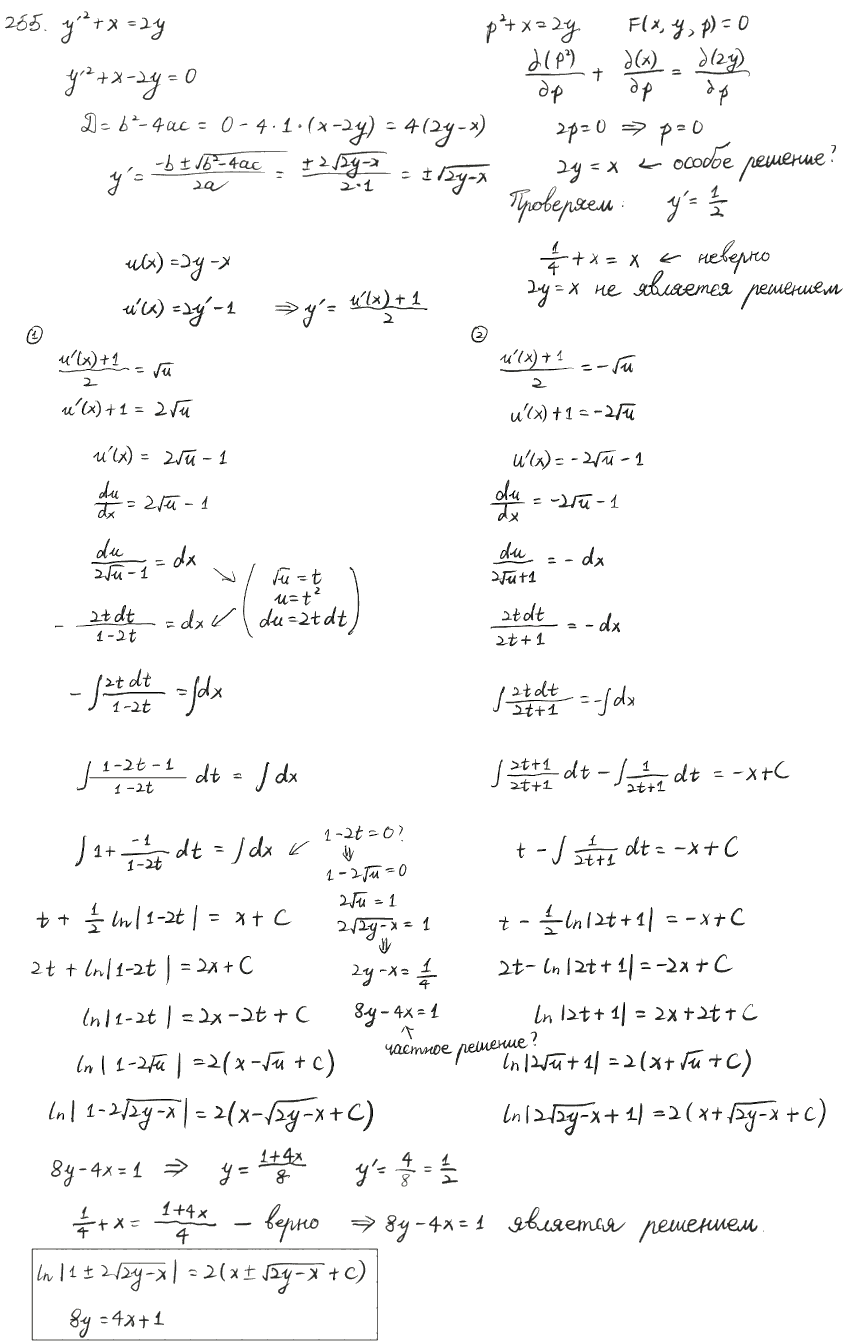 255. y'² + x = 2y
y'² + x - 2y = 0
D = b² - 4ac = 0 - 4·1·(x - 2y) = 4(2y - x)
y' = (-b ± √(b² - 4ac))/2a = (±2√(2y - x))/(2·1) = ±√(2y - x)
p² + x = 2y F(x, y, p) = 0
∂(p²)/∂p + ∂(x)/∂p = ∂(2y)/∂p
2p = 0 ⇒ p = 0
2y = x ← особое решение?
Проверяем: y' = 1/2
1/4 + x = x ← неверно
2y = x не является решением
u(x) = 2y - x
u'(x) = 2y' - 1 ⇒ y' = (u'(x) + 1)/2
①
(u'(x) + 1)/2 = √u
u'(x) + 1 = 2√u
u'(x) = 2√u - 1
du/dx = 2√u - 1
du/(2√u - 1) = dx ↘
(√u = t
u = t²
du = 2t dt)
- 2t dt/(1 - 2t) = dx ↙
- ∫ 2t dt/(1 - 2t) = ∫ dx
∫ (1 - 2t - 1)/(1 - 2t) dt = ∫ dx
∫ 1 + (-1)/(1 - 2t) dt = ∫ dx ↙
1 - 2t = 0?
⇓
1 - 2√u = 0
2√u = 1
2√(2y - x) = 1
⇓
2y - x = 1/4
8y - 4x = 1
↑
частное решение?
t + 1/2 ln|1 - 2t| = x + C
2t + ln|1 - 2t| = 2x + C
ln|1 - 2t| = 2x - 2t + C
ln|1 - 2√u| = 2(x - √u + C)
ln|1 - 2√(2y - x)| = 2(x - √(2y - x) + C)
②
(u'(x) + 1)/2 = -√u
u'(x) + 1 = -2√u
u'(x) = -2√u - 1
du/dx = -2√u - 1
du/(2√u + 1) = -dx
2t dt/(2t + 1) = -dx
∫ 2t dt/(2t + 1) = -∫ dx
∫ (2t + 1)/(2t + 1) dt - ∫ 1/(2t + 1) dt = -x + C
t - ∫ 1/(2t + 1) dt = -x + C
t - 1/2 ln|2t + 1| = -x + C
2t - ln|2t + 1| = -2x + C
ln|2t + 1| = 2x + 2t + C
ln|2√u + 1| = 2(x + √u + C)
ln|2√(2y - x) + 1| = 2(x + √(2y - x) + C)
8y - 4x = 1 ⇒ y = (1 + 4x)/8 y' = 4/8 = 1/2
1/4 + x = (1 + 4x)/4 – верно ⇒ 8y - 4x = 1 является решением.
ln|1 ± 2√(2y - x)| = 2(x ± √(2y - x) + C)
8y = 4x + 1